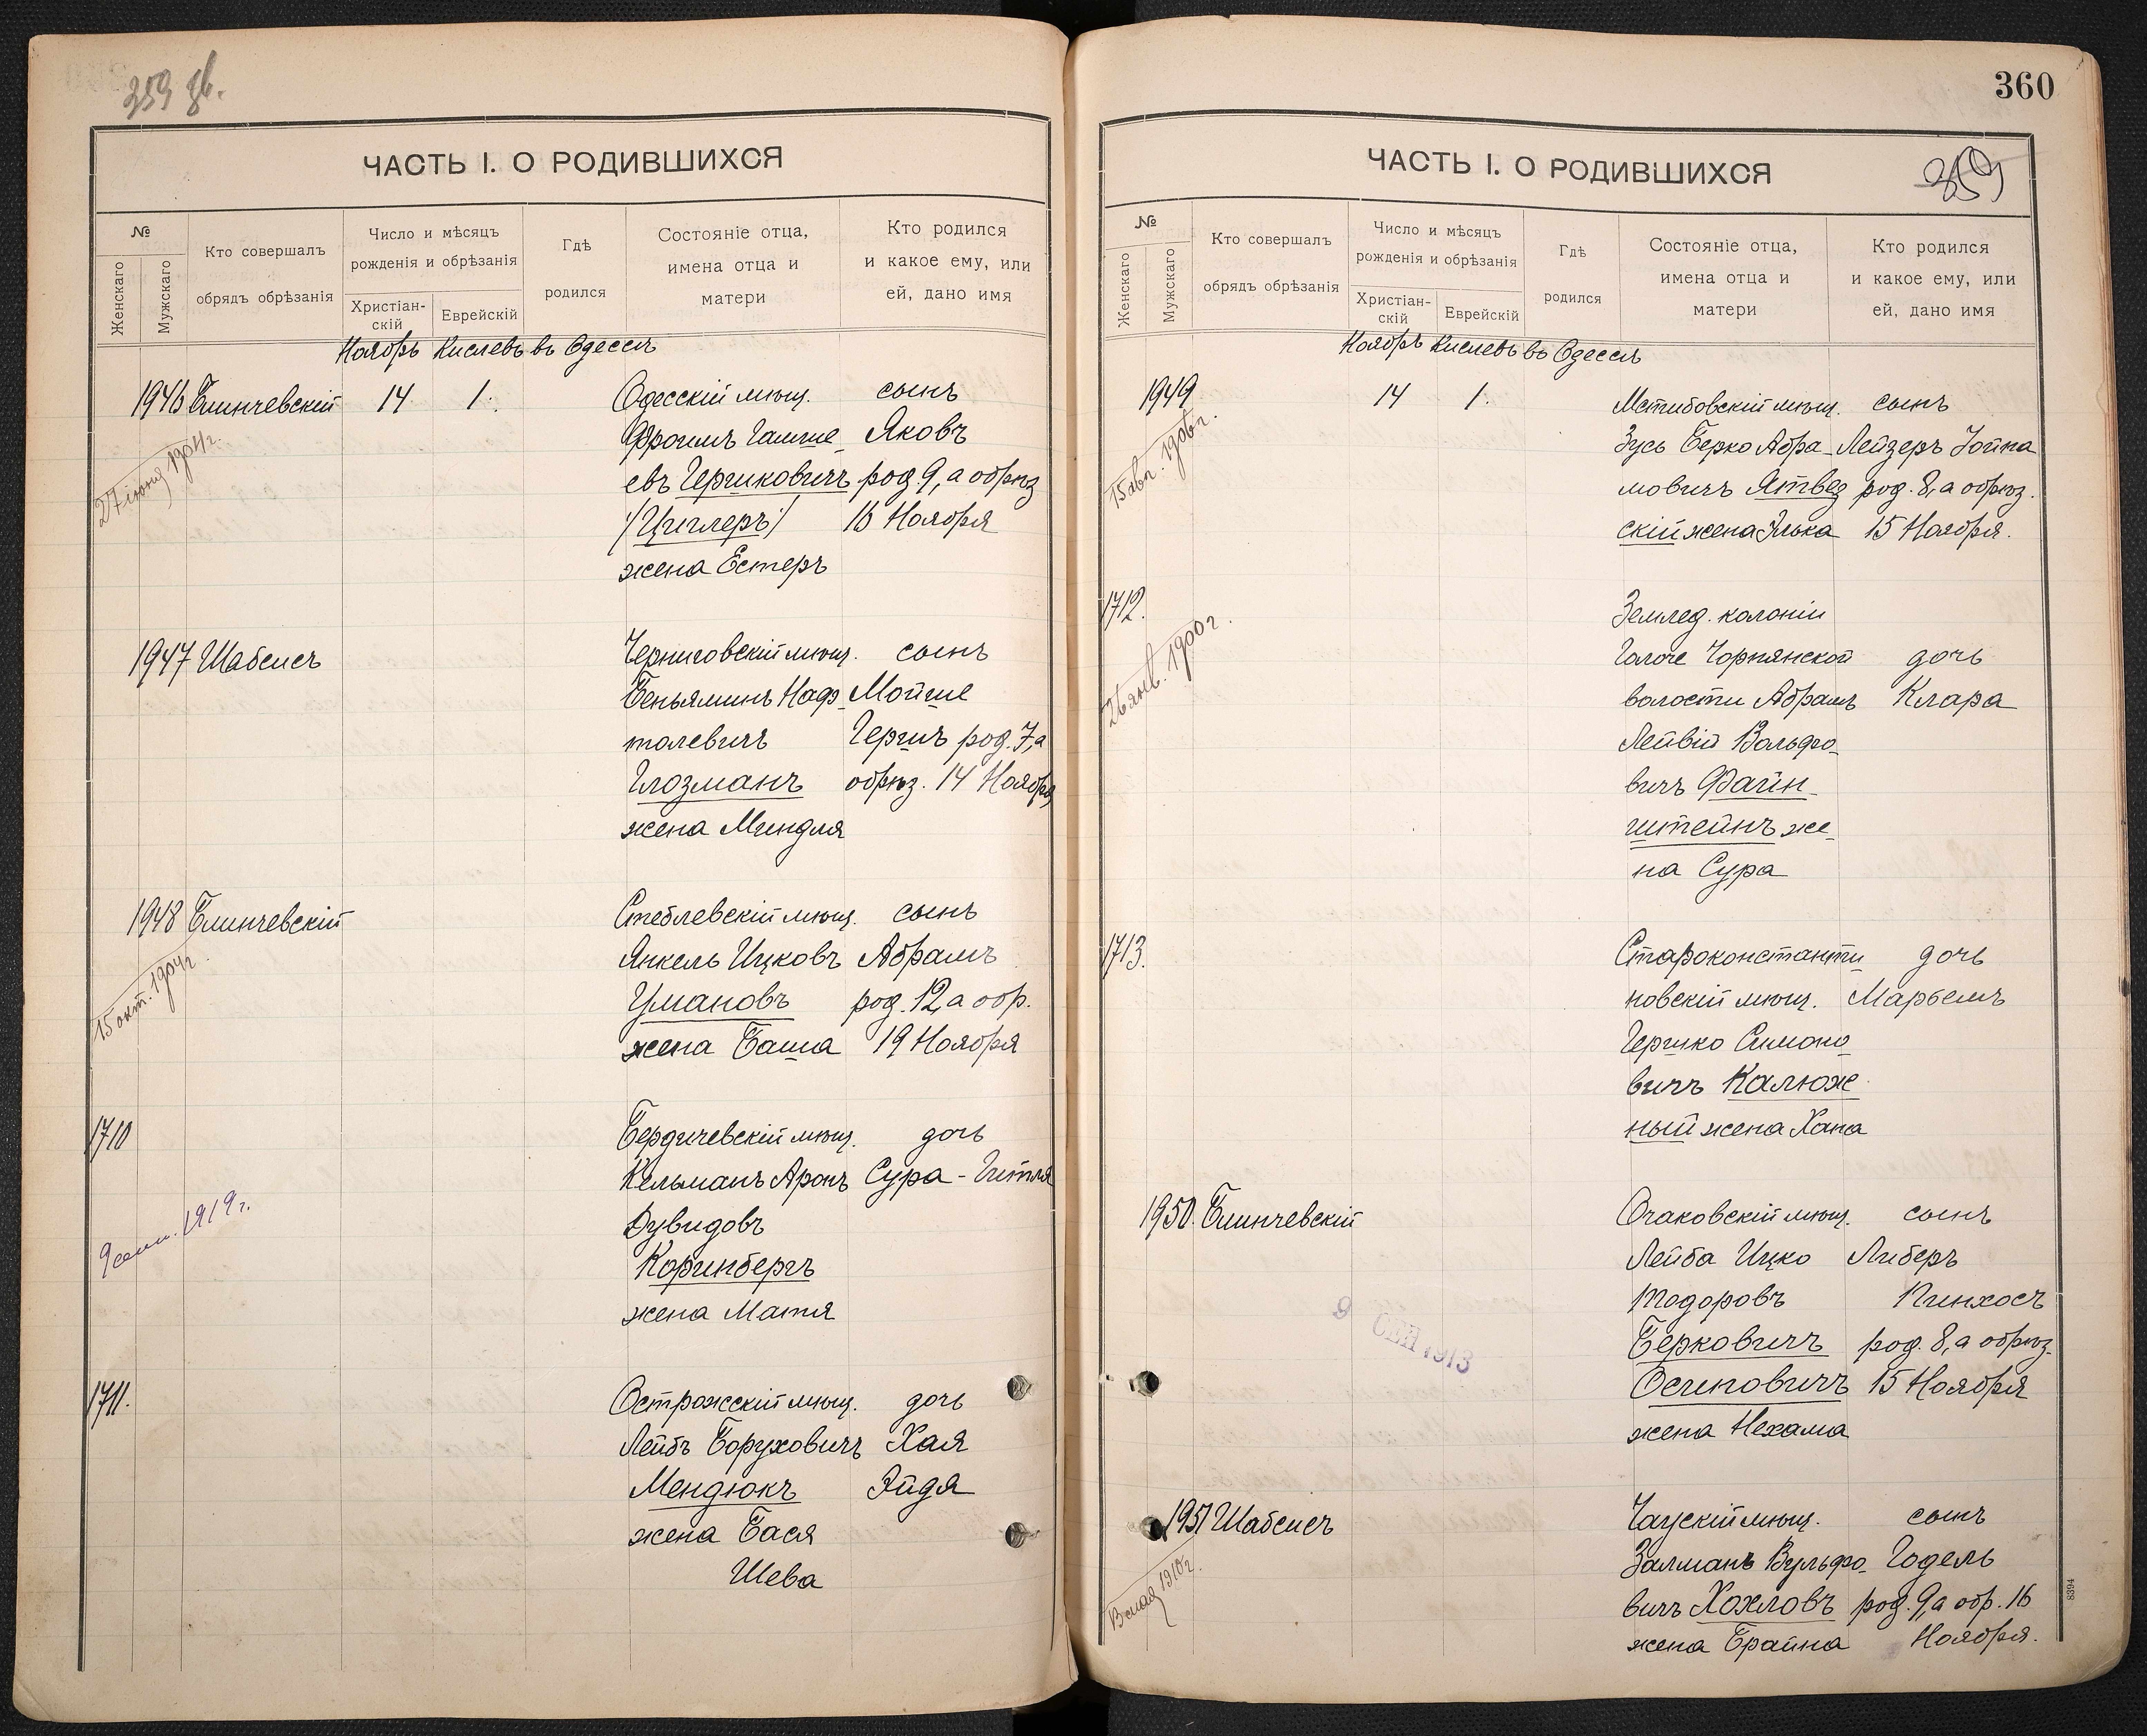 359 об.
ЧАСТЬ I. О РОДИВШИХСЯ
№
Женскаго
Мужскаго
Кто совершалъ
обрядъ обрѣзанія
Число и мѣсяцъ
рожденія и обрѣзанія
Христіан-
скій
Еврейскій
Гдѣ
родился
Состояніе отца,
имена отца и
матери
Кто родился
и какое ему, или
ей, дано имя
Ноябрь Кислевъ въ Одессѣ
1946 Блинчевскій 14 1. Одесскій мѣщ. сынъ
27 іюня 1904 г.
Фроимъ Гамше- Яковъ
евъ Гершковичъ род. 9, а обрѣз
/Циглеръ/ 16 Ноября
жена Естеръ
1947 Шабсисъ Черниговскій мѣщ. сынъ
Беньяминъ Наф- Мойше
толевичъ Гершъ род. 7, а
Глозманъ обрѣз. 14 Ноября
жена Миндля
1948 Блинчевскій Стеблевскій мѣщ. сынъ
15 окт. 1904 г.
Янкель Ицковъ Абрамъ
Умановъ род. 12, а обр.
жена Баша 19 Ноября
1710 Бердичевскій мѣщ. дочь
Кельманъ Аронъ Сура - Гитля
9 сент. 1919 г.
Дувидовъ
Коринбергъ
жена Матля
1711. Острожскій мѣщ. дочь
Лейбъ Боруховичъ Хая
Мендюкъ Эйдя
жена Бася
Шева
360
ЧАСТЬ I. О РОДИВШИХСЯ
359
№
Женскаго
Мужскаго
Кто совершалъ
обрядъ обрѣзанія
Число и мѣсяцъ
рожденія и обрѣзанія
Христіан-
скій
Еврейскій
Гдѣ
родился
Состояніе отца,
имена отца и
матери
Кто родился
и какое ему, или
ей, дано имя
Ноябрь Кислевъ въ Одессѣ
1949 14 1. Мстибовскій мѣщ. сынъ
15 авг. 1906 г.
Зусь Берко Абра- Лейзеръ Іойна
мовичъ Ятвез род. 8, а обрѣз.
скій жена Элька 15 Ноября.
1712. Землед. колоніи
26 янв. 1900 г.
Чорнянской дочь
волости Абрамъ Клара
Лейвій Вольфо-
вичъ Файн-
штейнъ же-
на Сура
1713. Староконстанти- дочь
новскій мѣщ. Марьемъ
Гершко Симоно-
вичъ Калюж-
ный жена Хана
1950. Блинчевскій Очаковскій мѣщ. сынъ
Лейба Ицко Либеръ
Тодоровъ Пинхосъ
9 СЕН 1913
Берковичъ род. 8, а обрѣз.
Осиповичъ 15 Ноября
жена Нехама
1951 Шабсисъ Чаусскій мѣщ. сынъ
Залманъ Вульфо- Годель
1910 г.
вичъ Хохловъ род. 9, а обр. 16
жена Брайна Ноября.
8394